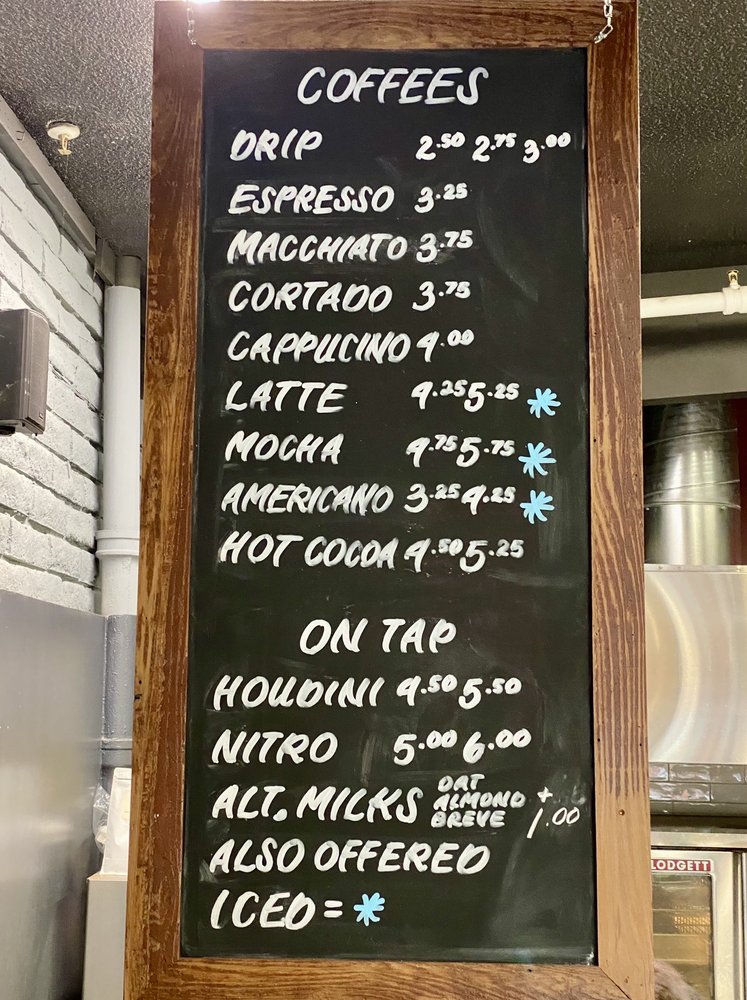 COFFEES
DRIP 2.50 2.75 3.00
ESPRESSO 3.25
MACCHIATO 3.75
CORTADO 3.75
CAPPUCINO 4.00
LATTE 4.25 5.25 *
MOCHA 4.75 5.75 *
AMERICANO 3.25 4.25 *
HOT COCOA 4.50 5.25
ON TAP
HOUDINI 4.50 5.50
NITRO 5.00 6.00
ALT. MILKS OAT ALMOND BREVE + 1.00
ALSO OFFERED
ICED = *
LODGETT